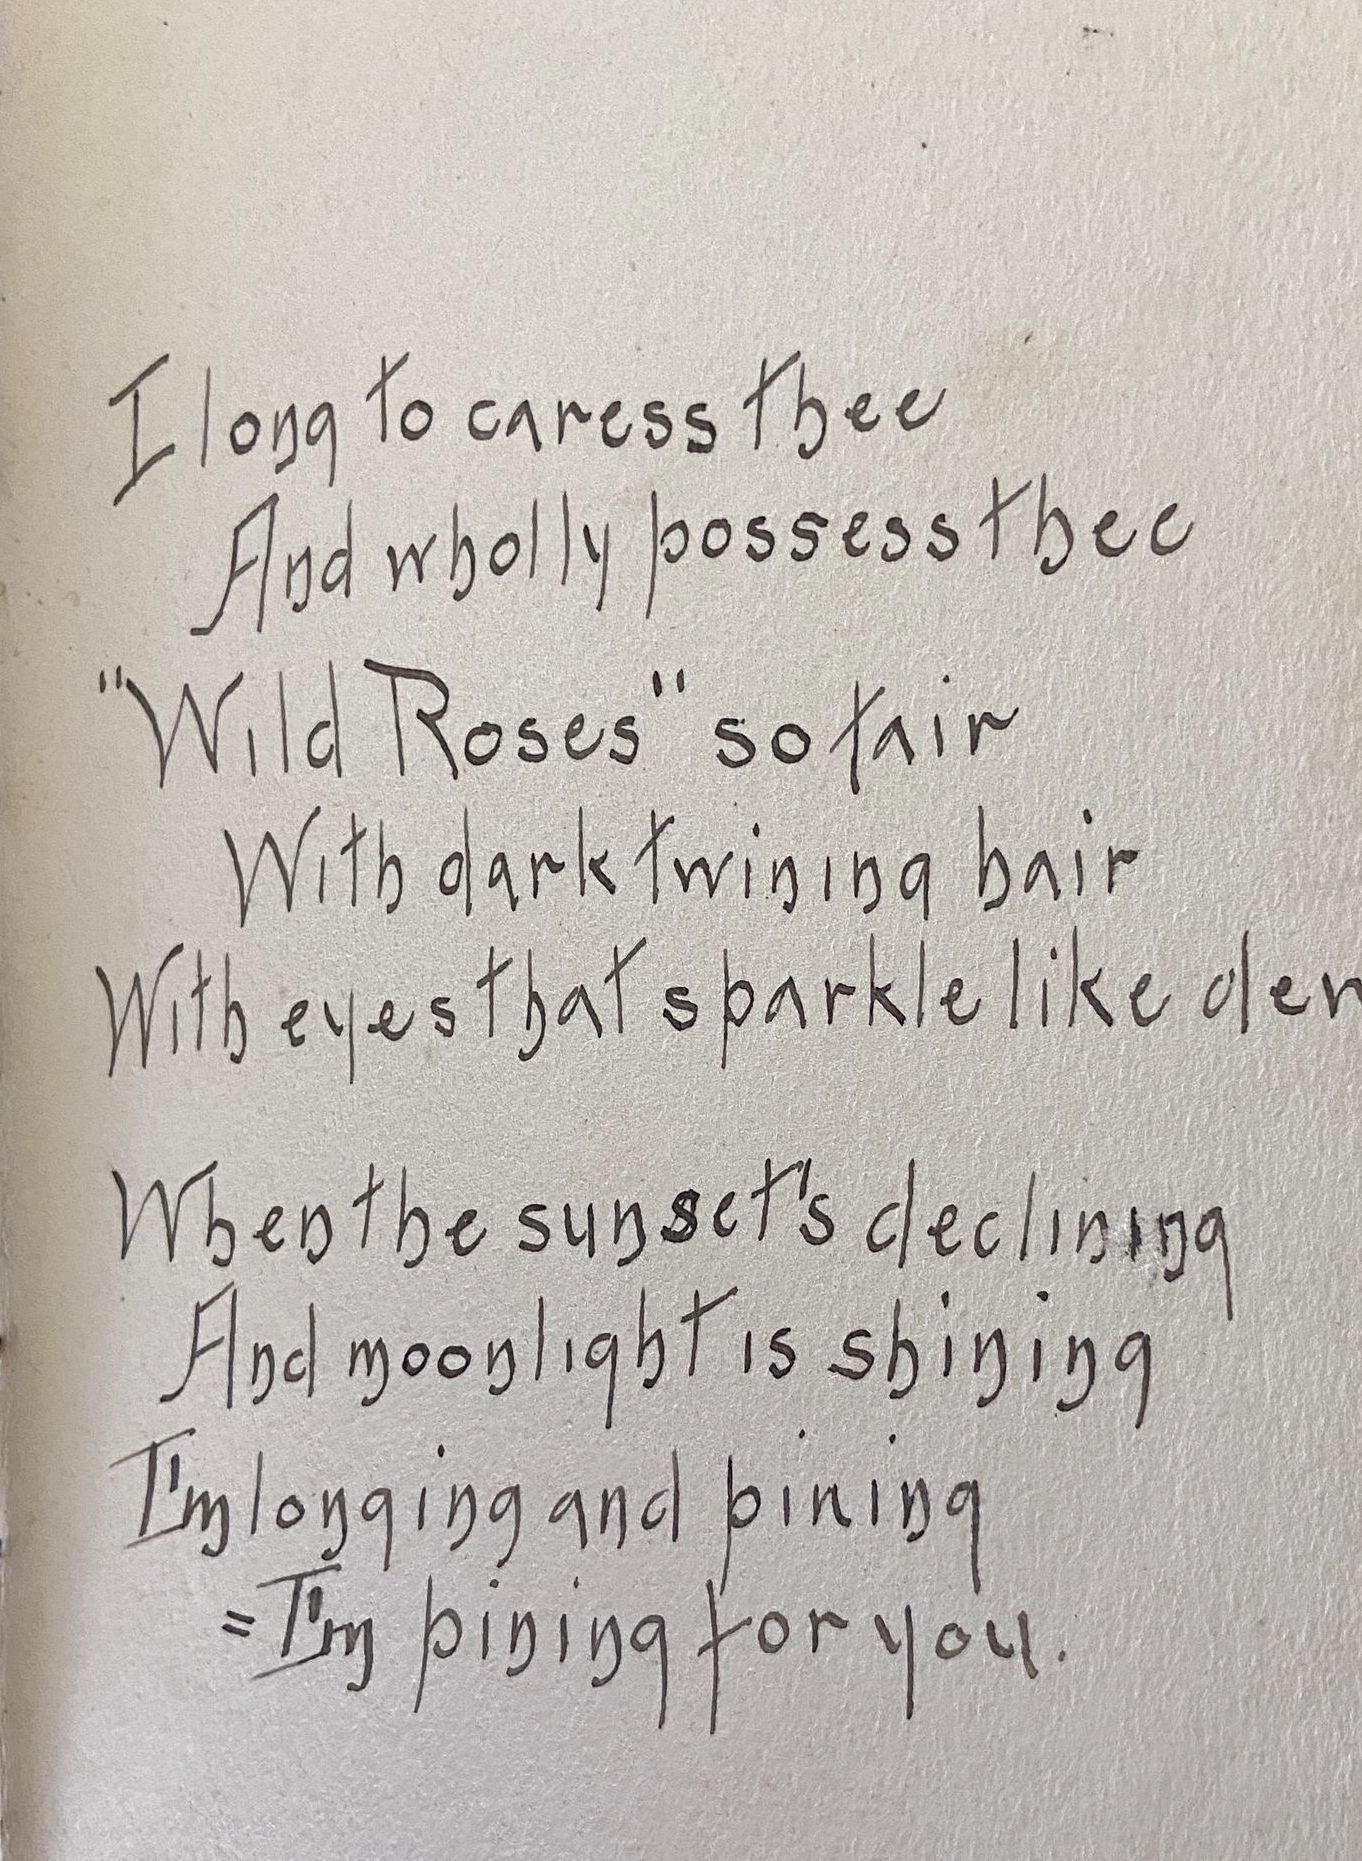 I long to caress thee
And wholly possess thee
"Wild Roses" so fair
With dark twining hair
With eyes that sparkle like dew
When the sunset's declining
And moonlight is shining
I'm longing and pining
= I'm pining for you.